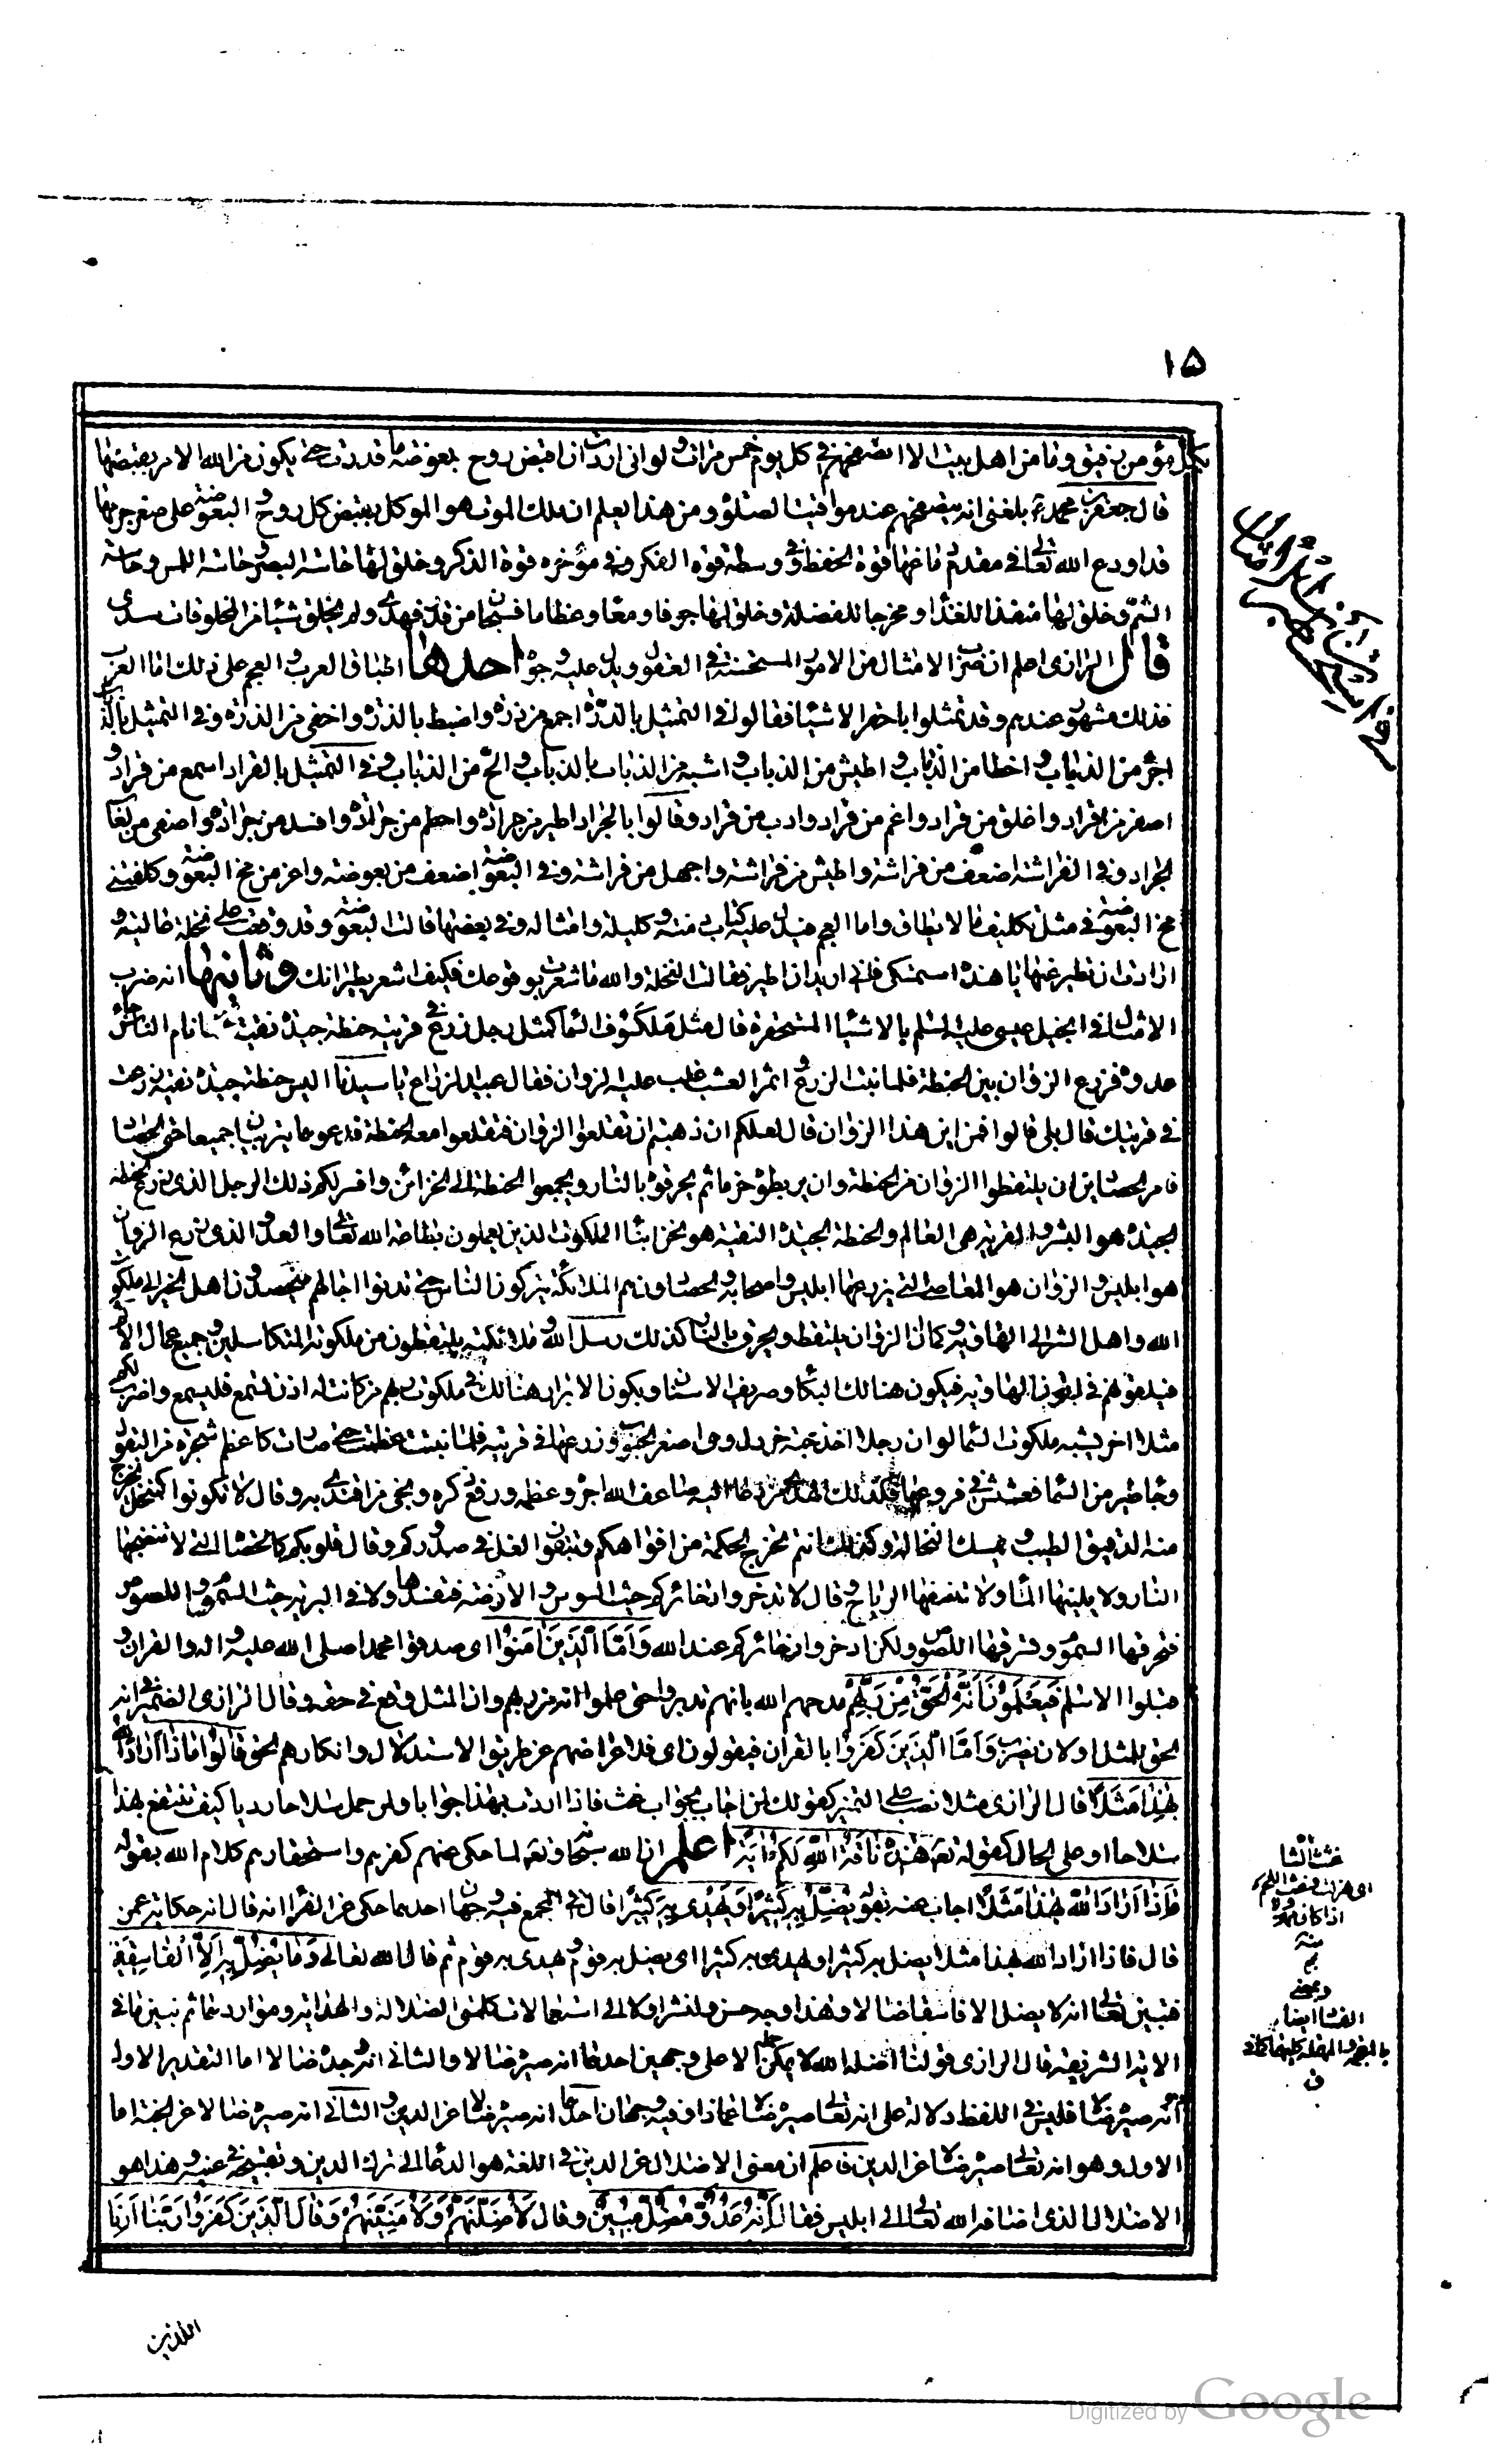 ١٥
بكل مؤمن رفيق وما من اهل بيت الا اتصفحهم فى كل يوم خمس مرات ولو انى اردت ان اقبض روح بعوضة ما قدرت حتى يكون من الله الامر بقبضها
قال جعفر بن محمد بلغنى انه يتصفحهم عند مواقيت الصلوة ومن هذا يعلم ان ملك الموت هو الموكل بقبض كل روح البعوضة على صغر جرمها
قد اودع الله تعالى فى مقدم دماغها قوة الحفظ وفى وسطه قوة الفكر وفى مؤخره قوة الذكر وخلق لها حاسة البصر وحاسة اللمس وحاسة
الشم وخلق لها منفذا للغذا ومخرجا للفضلة وخلق لها جوفا ومعا وعظاما فسبحان من قدر فهدى ولم يخلق شيئا من المخلوقات سدى
قال الرازى اعلم ان ضرب الامثال من الامور المستحسنة فى العقول ويدل عليه وجوه احدها اطباق العرب والعجم على ذلك اما العرب
فذلك مشهور عندهم وقد تمثلوا باحقر الاشيا فقالوا فى التمثيل بالذرة اجمع من ذرة واضبط بالذرة واخفى من الذرة وفى التمثيل بالذباب
اجرأ من الذباب واخطا من الذباب واطيش من الذباب واشبه من الذباب بالذباب والح من الذباب وفى التمثيل بالقراد اسمع من قراد و
اصغر من قراد واعلق من قراد واغم من قراد وادب من قراد وقالوا بالجراد اطير من جرادة واحطم من جرادة وافسد من جرادة واصفى من لعاب
الجراد وفى الفراشة اضعف من فراشة واطيش من فراشة واجهل من فراشة وفى البعوضة اضعف من بعوضة واعز من مخ البعوضة وكلفتنى
مخ البعوضة فى مثل تكليف ما لا يطاق واما العجم فيدل عليه كتاب دمنة وكليلة وامثاله وفى بعضها قالت البعوضة وقد وقعت على نخلة عالية و
ارادت ان تطير عنها يا هذه استمسكى فانى اريد ان اطير فقالت النخلة والله ما شعرت بوقوعك فكيف اشعر بطيرانك وثانيها انه ضرب
الامثال فى انجيل عيسى عليه السلم بالاشيا المستحقرة قال مثل ملكوت السما كمثل رجل زرع فى قريته حنطة جيدة نقية فلما نام الناس جاء
عدوه فزرع الزوان بين الحنطة فلما نبت الزرع واثمر العشب غلب عليه الزوان فقال عبيد الزراع يا سيدنا اليس حنطة جيدة نقية زرعت
فى قريتك قال بلى قالوا فمن اين هذا الزوان قال لعلكم ان ذهبتم ان تقلعوا الزوان فتقلعوا معه الحنطة فدعوهما يتربيان جميعا حتى الحصاد
فامر الحصادين ان يلتقطوا الزوان من الحنطة وان يربطوه حزما ثم يحرقوه بالنار ويجمعوا الحنطة الى الخزائن وافسر لكم ذلك الرجل الذى زرع الحنطة
الجيدة هو ابو البشر والقرية هى العالم والحنطة الجيدة النقية هو نحن ابنا الملكوت الذين يعملون بطاعة الله تعالى والعدو الذى زرع الزوان
هو ابليس والزوان هو المعاصى التى يزرعها ابليس واصحابه والحصادون هم الملائكة يتركون الناس حتى تدنوا اجالهم فيحصدون اهل الخير الى ملكوت
الله واهل الشر الى الهاوية وكما ان الزوان يلتقط ويحرق بالنار كذلك رسل الله وملائكته يلتقطون من ملكوته المتكاسلين وجميع عمال الاثم
فيلقونهم فى اتون الهاوية فيكون هنالك البكا وصريف الاسنان ويكون الابرار هنالك فى ملكوت ربهم من كانت له اذن تسمع فليسمع واضرب لكم
مثلا اخر يشبه ملكوت السما لو ان رجلا اخذ حبة خردل وهى اصغر الحبوب وزرعها فى قريته فلما نبتت عظمت حتى صارت كاعظم شجرة من البقول
وجا طير من السما فعشش فى فروعها فكذلك الهدى من دعا اليه ضاعف الله اجره وعظمه ورفع ذكره ونجى من اقتدى به وقال لا تكونوا كمنخل يخرج
منه الدقيق الطيب ويمسك النخالة وكذلك انتم تخرج الحكمة من افواهكم وتبقون الغل فى صدوركم وقال قلوبكم كالحصاة التى لا تنضجها
النار ولا يلينها الما ولا تنسفها الرياح وقال لا تدخروا ذخائركم حيث السوس والارضة فتفسدها ولا فى البرية حيث السموم واللصوص
فتحرقها السموم وتسرقها اللصوص ولكن ادخروا ذخائركم عند الله وَاَمَّا الَّذِينَ اٰمَنُوا اى صدقوا محمدا صلى الله عليه واله والقران و
قبلوا الاسلم فَيَعْلَمُونَ اَنَّهُ الْحَقُّ مِنْ رَبِّهِمْ مدحهم الله بانهم تدبروا حتى علموا انه من ربهم وان المثل وقع فى حقه وقال الرازى الضمير فى انه
الحق للمثل او لان يضرب وَاَمَّا الَّذِينَ كَفَرُوا بالقران فيقولون اى فلاعراضهم عن طريق الاستدلال وانكارهم الحق قالوا مَاذَا اَرَادَ اللّٰهُ
بِهٰذَا مَثَلًا قال الرازى مثلا نصب على التميز كقولك لمن اجاب بجواب غث ماذا اردت بهذا جوابا ولمن حمل سلاحا رديا كيف تنتفع بهذا
سلاحا او على الحال كقوله تعه هٰذِهِ نَاقَةُ اللّٰهِ لَكُمْ اٰيَةً اعلم ان الله سبحانه وتعه لما حكى عنهم كفرهم واستحقارهم كلام الله بقوله
مَاذَا اَرَادَ اللّٰهُ بِهٰذَا مَثَلًا اجاب عنه بقوله يُضِلُّ بِهِ كَثِيرًا وَيَهْدِى بِهِ كَثِيرًا قال فى المجمع فيه وجهان احدهما حكى عن الفرا انه قال انه حكاية عمن
قال ماذا اراد الله بهذا مثلا يضل به كثيرا ويهدى به كثيرا اى يضل به قوم ويهدى به قوم ثم قال الله تعالى وَمَا يُضِلُّ بِهِ اِلَّا الْفَاسِقِينَ
فتبين تعالى انه لا يضل الا فاسقا ضالا وهذا وجه حسن
الاية الشريفة قال الرازى قولنا اضله الله لا يمكن حمله الا على وجهين احدهما انه صيره ضالا والثانى انه وجده ضالا اما التقدير الاول
انه صيره ضالا فليس فى اللفظ دلالة على انه تعالى صيره ضالا عماذا وفيه وجهان احدهما انه صيره ضالا عن الدين والثانى انه صيره ضالا عن الجنة اما
الاول وهو انه تعالى صيره ضالا عن الدين فاعلم ان معنى الاضلال عن الدين فى اللغة هو الدعا الى ترك الدين وتقبيحه فى عينه وهذا هو
الاضلال الذى اضافه الله تعالى الى ابليس فقال اِنَّهُ عَدُوٌّ مُضِلٌّ مُبِينٌ وقال لَاُضِلَّنَّهُمْ وَلَاُمَنِّيَنَّهُمْ وَقَالَ الَّذِينَ كَفَرُوا رَبَّنَا اَرِنَا
غثت الشا
منه
ق
اللذين
Digitized by Google